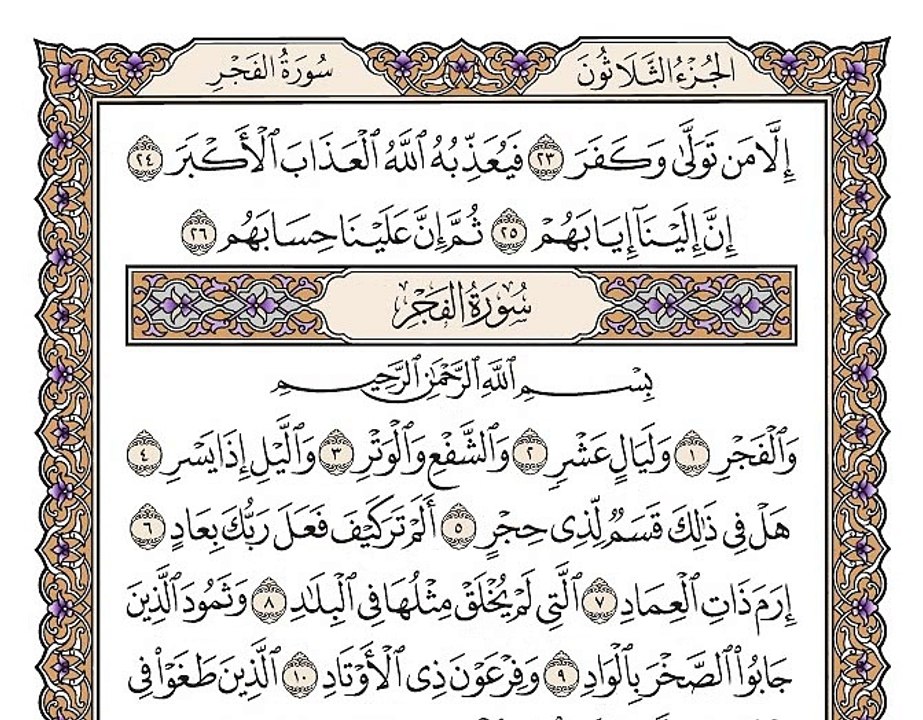 الجُزْءُ الثَّلَاثُونَ سُورَةُ الفَجْرِ
إِلَّا مَن تَوَلَّىٰ وَكَفَرَ ٢٣ فَيُعَذِّبُهُ ٱللَّهُ ٱلْعَذَابَ ٱلْأَكْبَرَ ٢٤
إِنَّ إِلَيْنَآ إِيَابَهُمْ ٢٥ ثُمَّ إِنَّ عَلَيْنَا حِسَابَهُم ٢٦
سُورَةُ الفَجْرِ
بِسْمِ ٱللَّهِ ٱلرَّحْمَٰنِ ٱلرَّحِيمِ
وَٱلْفَجْرِ ١ وَلَيَالٍ عَشْرٍ ٢ وَٱلشَّفْعِ وَٱلْوَتْرِ ٣ وَٱلَّيْلِ إِذَا يَسْرِ ٤
هَلْ فِى ذَٰلِكَ قَسَمٌ لِّذِى حِجْرٍ ٥ أَلَمْ تَرَ كَيْفَ فَعَلَ رَبُّكَ بِعَادٍ ٦
إِرَمَ ذَاتِ ٱلْعِمَادِ ٧ ٱلَّتِى لَمْ يُخْلَقْ مِثْلُهَا فِى ٱلْبِلَٰدِ ٨ وَثَمُودَ ٱلَّذِينَ
جَابُوا۟ ٱلصَّخْرَ بِٱلْوَادِ ٩ وَفِرْعَوْنَ ذِى ٱلْأَوْتَادِ ١٠ ٱلَّذِينَ طَغَوْا۟ فِى